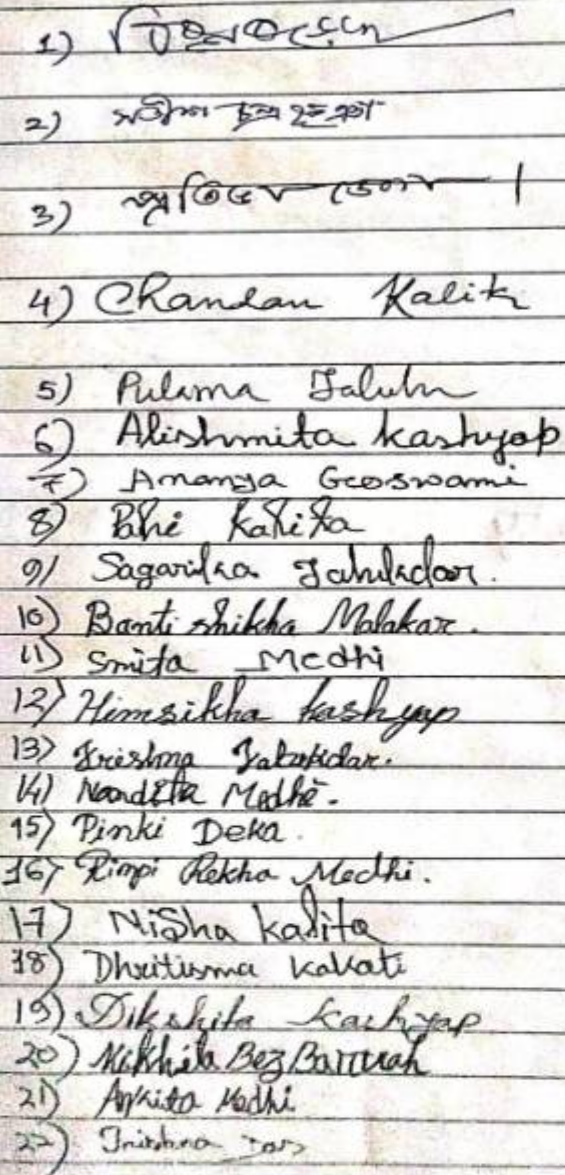 1)
2) সতীশ চন্দ্র
3)
4) Chandan Kalita
5)
6) Alishmita Kashyap
7) Ananya Goswami
8) Pahi Kalita
9) Sagarika Talukdar.
10) Banti shikha Malakar.
11) Smita Medhi
12) Himsikha Kashyap
13) Trishna Talukdar.
14) Nandita Medhi.
15) Pinki Deka.
16) Rimpi Rekha Medhi.
17) Nisha Kalita
18) Dhritisma Kakati
19) Dikshita Kashyap
20) Nikhita Bez Barruah
21) Ankita Medhi
22) Trishna Das